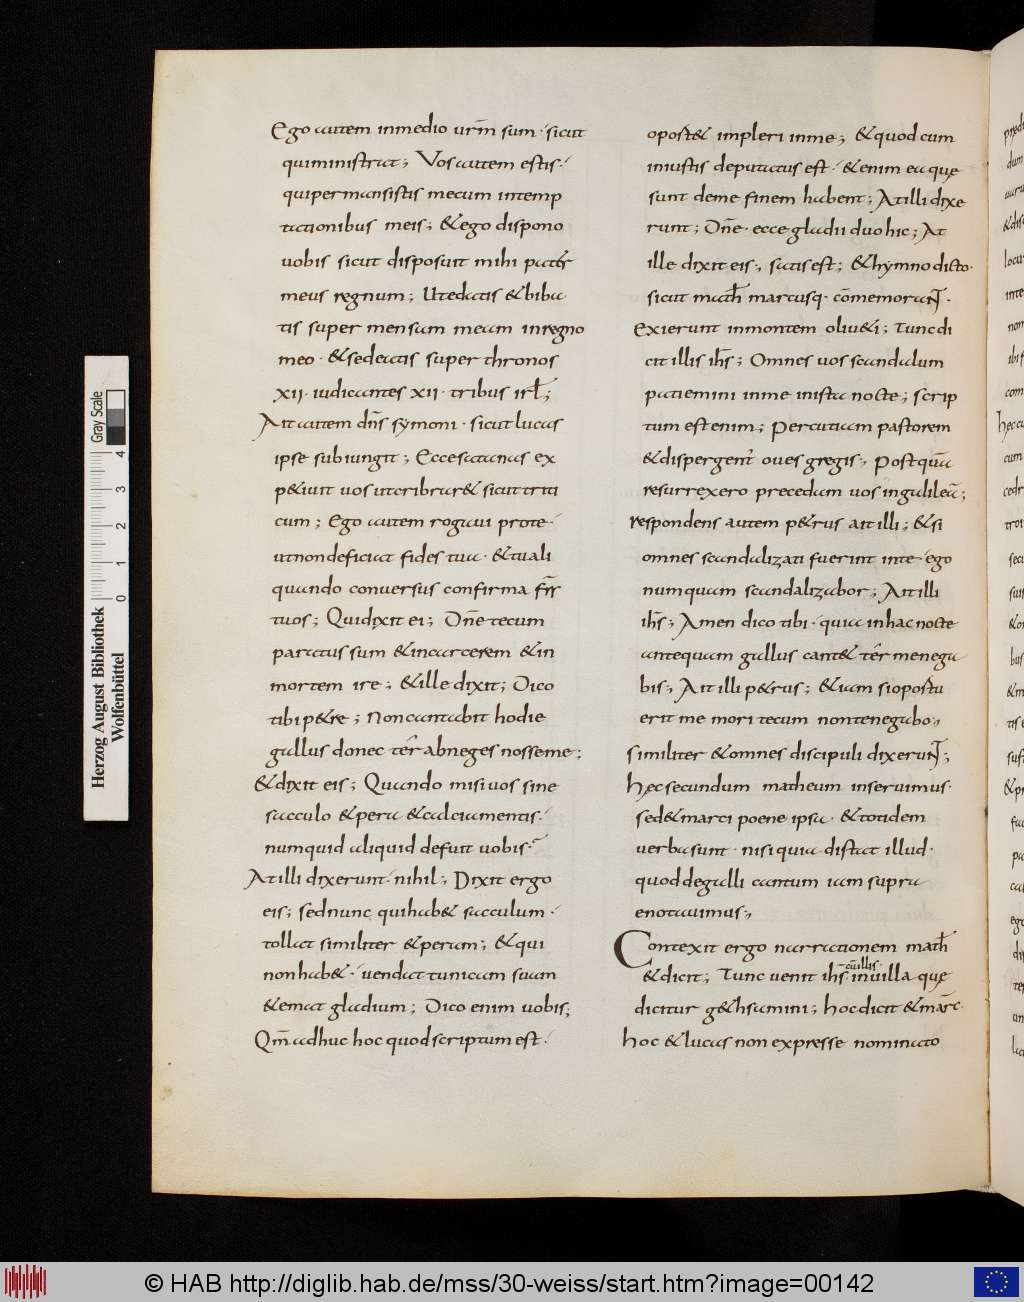 Ego autem in medio urm̄ sum · sicut
qui ministrat; Vos autem estis ·
qui permansistis mecum in temp
tationibus meis; & ego dispono
uobis sicut disposuit mihi pater
meus regnum; Ut edatis & biba
tis super mensam meam in regno
meo · & sedeatis super thronos
xii · iudicantes xii · tribus irł;
Ait autem dn̄s symoni · sicut lucas
ipse subiungit; Ecce satanas ex
p&iuit uos ut cribrar& sicut triti
cum; Ego autem rogaui pro te ·
ut non deficiat fides tua · & tu ali
quando conuersus confirma fr̄r
tuos; Qui dixit ei; Dn̄e tecum
paratus sum & in carcerem & in
mortem ire; & ille dixit; Dico
tibi p&re; Non cantabit hodie
gallus donec ter̄ abneges nosse me;
& dixit eis; Quando misi uos sine
sacculo & pera & calciamentis ·
numquid aliquid defuit uobis ·
At illi dixerunt · nihil; Dixit ergo
eis; sed nunc qui hab& sacculum ·
tollat similiter & peram; & qui
non hab& · uendat tunicam suam
& emat gladium; Dico enim uobis;
Qm̄ adhuc hoc quod scriptum est ·
oport& impleri in me; & quod cum
iniustis deputatus est · & enim ea quę
sunt de me finem habent; At illi dixe
runt; Dn̄e · ecce gladii duo hic; At
ille dixit eis; satis est; & hymno dicto ·
sicut math̄ marcusq · cōmemorant ·
Exierunt in montem oliu&i; Tunc di
cit illis ih̄s; Omnes uos scandalum
patiemini in me in ista nocte; scrip
tum est enim; Percutiam pastorem
& dispergent oues gregis; Postquā
resurrexero precedam uos in galileā;
Respondens autem p&rus ait illi; & si
omnes scandalizati fuerint in te · ego
numquam scandalizabor; Ait illi
ih̄s; Amen dico tibi · quia in hac nocte
antequam gallus cant& ter̄ me nega
bis; Ait illi p&rus; & iam si oportu
erit me mori tecum non te negabo;
similiter & omnes discipuli dixerunt;
hęc secundum matheum inseruimus ·
sed & marci poene ipsa · & totidem
uerba sunt · nisi quia distat illud ·
quod de galli cantum iam supra
enotauimus;
Contexit ergo narrationem math̄
& dicit; Tunc uenit ih̄s cū illis · in uilla quę
dicitur g&hsamini; hoc dicit & mārc ·
hoc & lucas non expresse nominato
Herzog August Bibliothek
Wolfenbüttel
0 1 2 3 4
Gray Scale
© HAB http://diglib.hab.de/mss/30-weiss/start.htm?image=00142